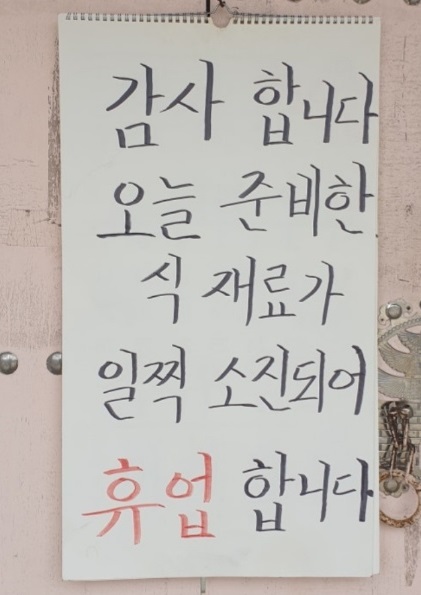 감사 합니다
오늘 준비한
식 재료가
일찍 소진되어
휴업 합니다